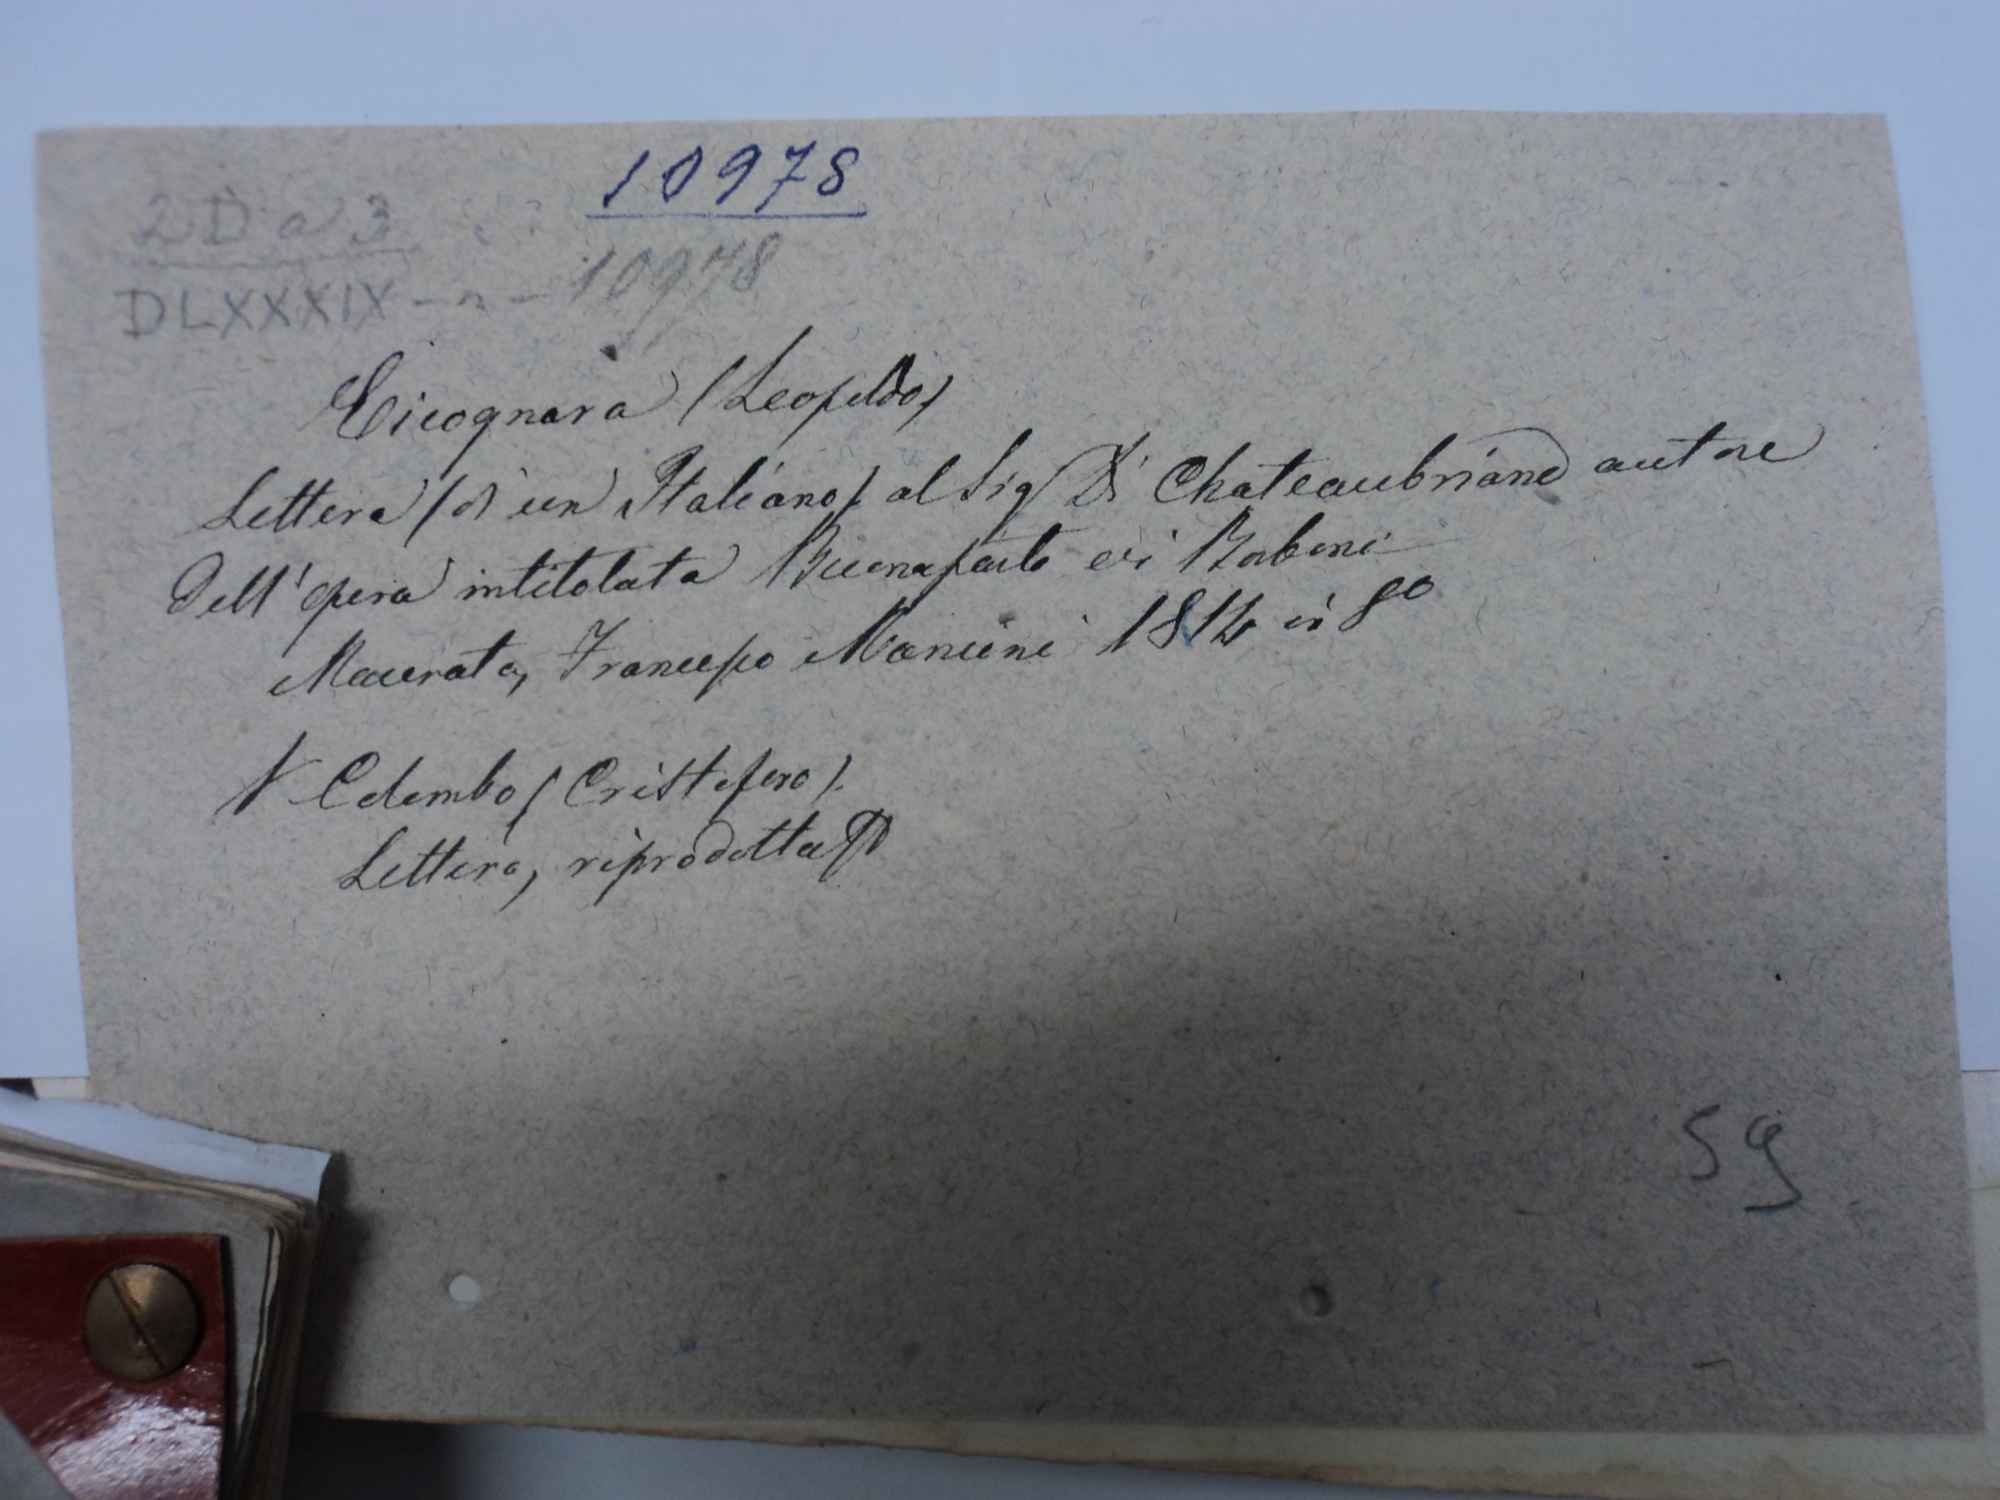 10978
2D a 3
DLXXXIX - n - 10978
Cicognara (Leopoldo)
Lettera (di un Italiano) al Sig Di Chateaubriand autore
dell'opera intitolata Buonaparte e i Borboni
Macerata, Francesco Mancini 1814 in 8º
V Colombo (Cristoforo).
Lettera, riprodotta
59